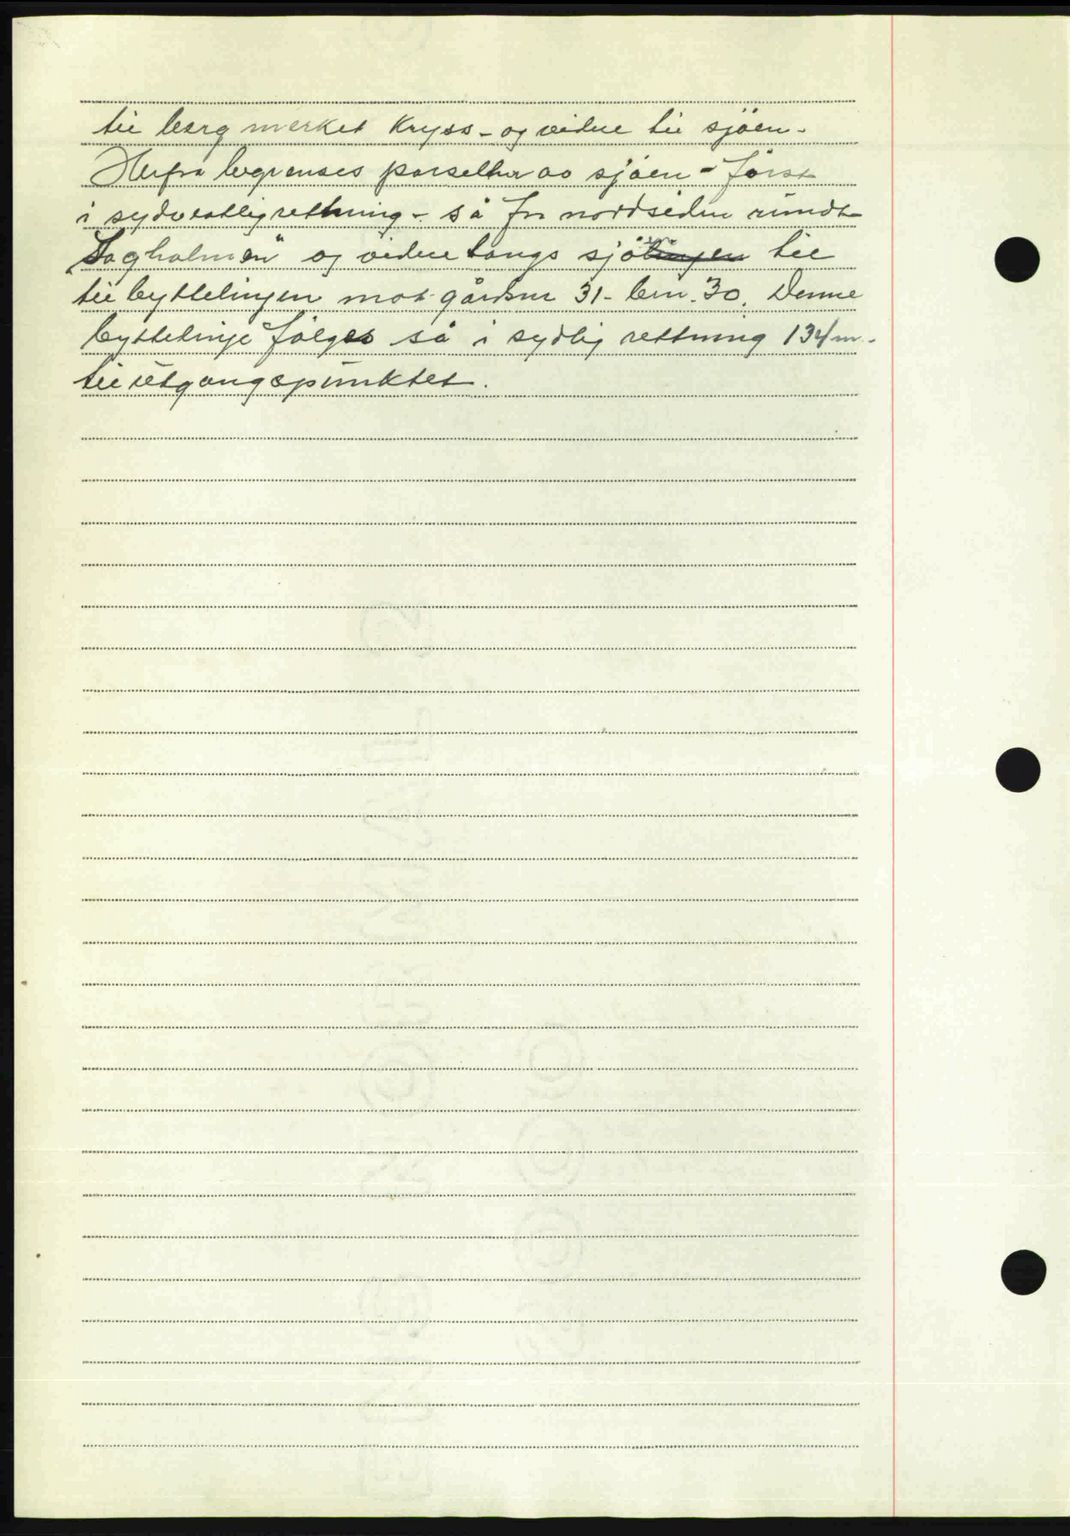 til berg merket kryss - og videre til sjöen.
Herfra begrenses parsellen av sjöen - först
i sydvestlig rettning - så fra nordsiden rundt
"Sagholmen" og videre langs sjö til
til byttelinjen mot gårdsnr 31 - brn. 30. Denne
byttelinje fölges så i sydlig rettning 134 m.
til utgangspunktet.